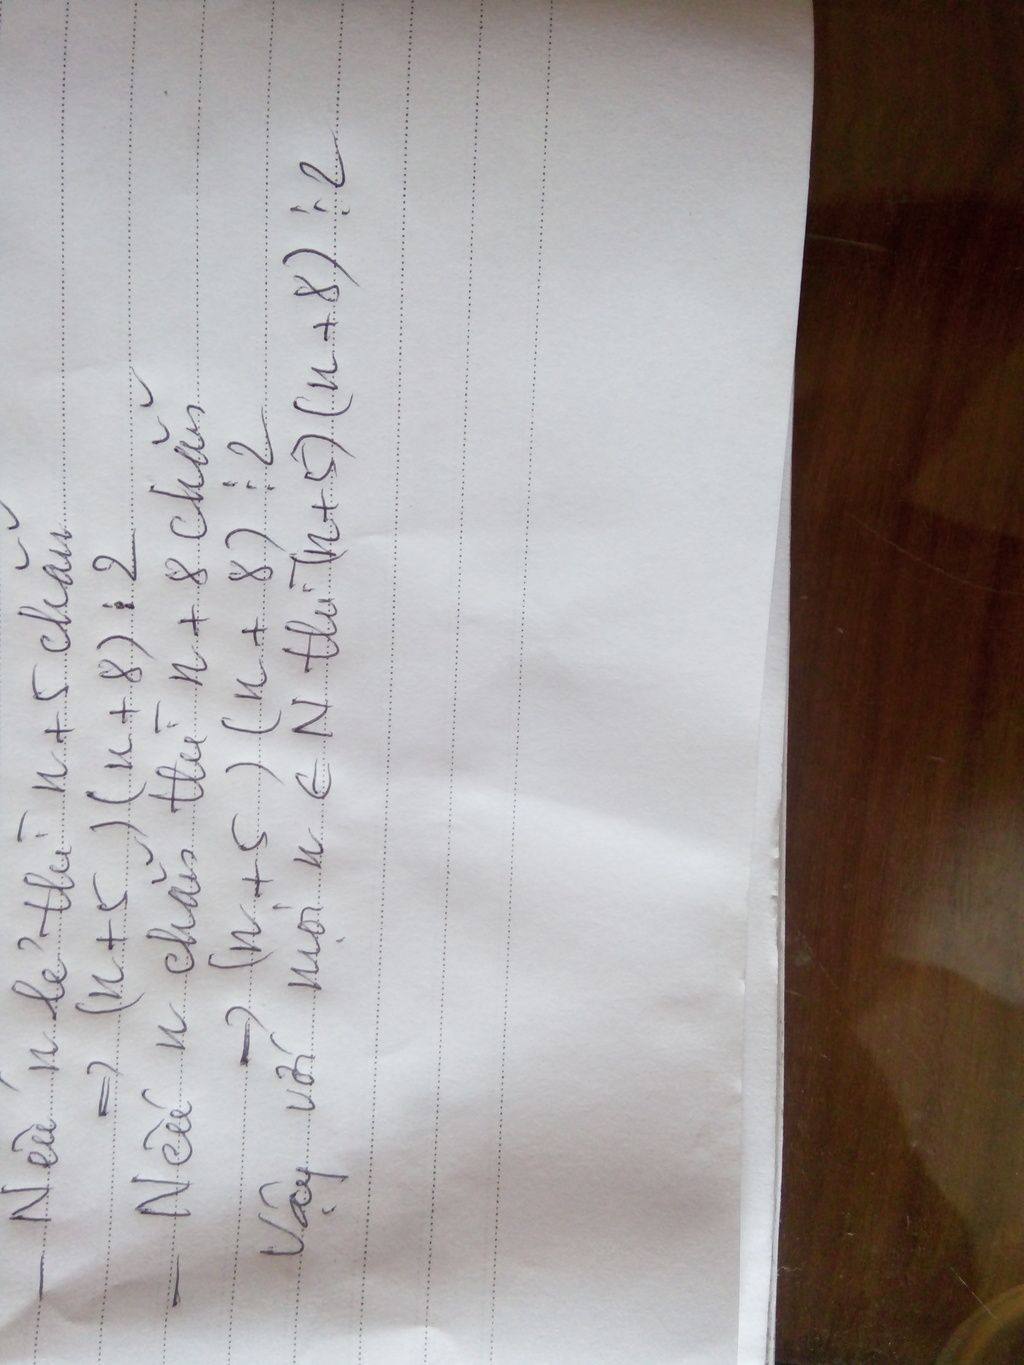 — Nếu n lẻ thì n + 5 chẵn
=> (n + 5)(n + 8) ⋮ 2
— Nếu n chẵn thì n + 8 chẵn
=> (n + 5)(n + 8) ⋮ 2
Vậy với mọi n ∈ N thì (n + 5)(n + 8) ⋮ 2